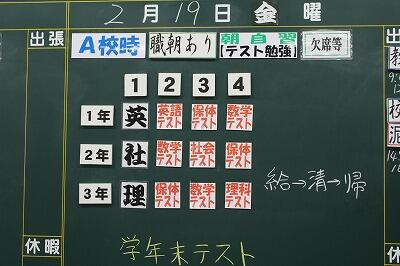 2月19日 金曜
出張
A校時 職朝あり 朝自習【テスト勉強】 欠席等
1 2 3 4
1年 英 英語テスト 保体テスト 数学テスト
2年 社 数学テスト 社会テスト 保体テスト
3年 理 保体テスト 数学テスト 理科テスト
給→清→帰
休暇
学年末テスト
出
休